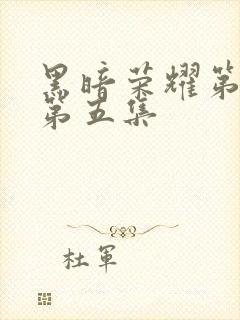 黑暗荣耀第
第五集
杜軍